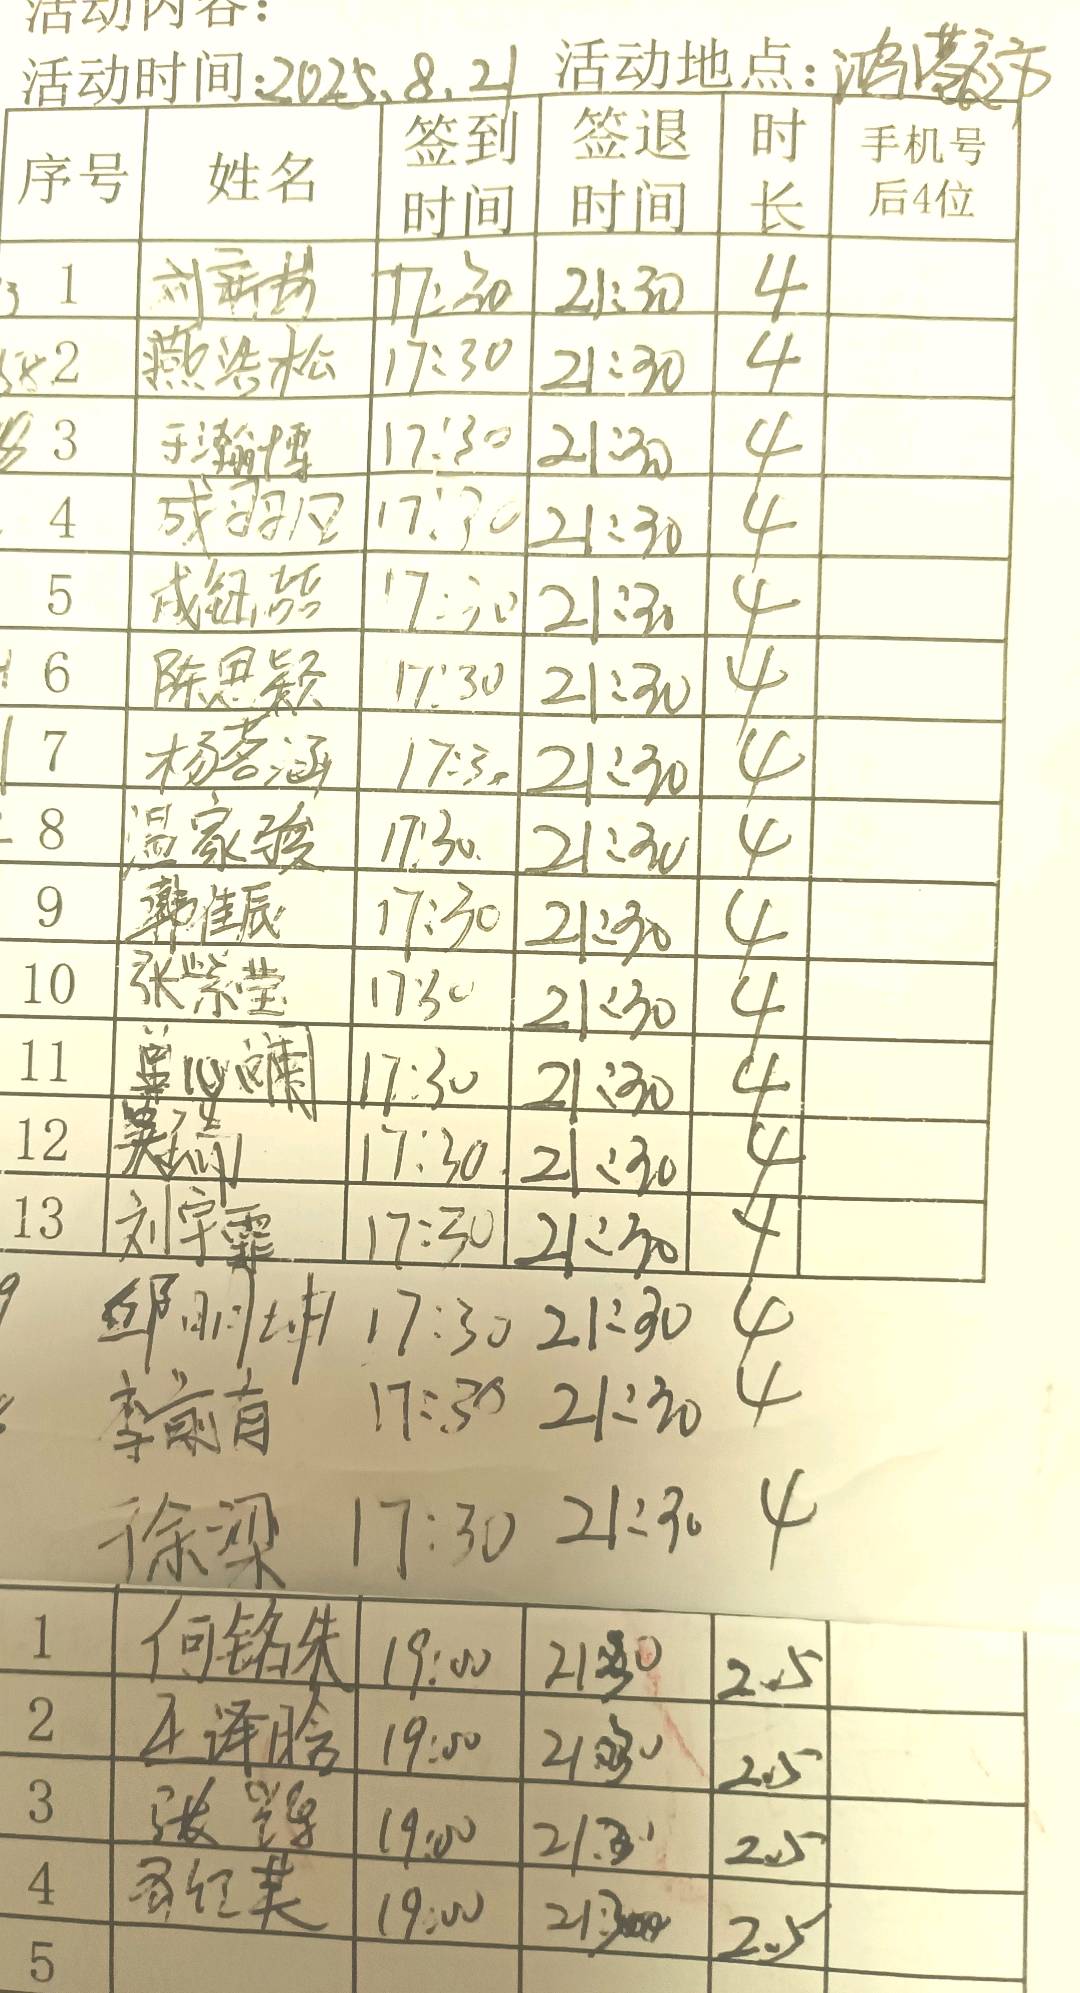 活动内容:
活动时间:2025.8.21 活动地点:鸿蒙
序号 姓名 签到时间 签退时间 时长 手机号后4位
1 刘新 17:30 21:30 4
2 燕浩松 17:30 21:30 4
3 于瀚博 17:30 21:30 4
4 成羽凡 17:30 21:30 4
5 成钰喆 17:30 21:30 4
6 陈思颖 17:30 21:30 4
7 杨茗涵 17:30 21:30 4
8 温家骏 17:30 21:30 4
9 郭佳辰 17:30 21:30 4
10 张紫莹 17:30 21:30 4
11 17:30 21:30 4
12 吴瑞 17:30 21:30 4
13 刘宇霏 17:30 21:30 4
邱明坤 17:30 21:30 4
李前育 17:30 21:30 4
徐梁 17:30 21:30 4
1 何铭朱 19:00 21:30 2.5
2 王译晗 19:00 21:30 2.5
3 张 19:00 21:30 2.5
4 红英 19:00 21:30 2.5
5